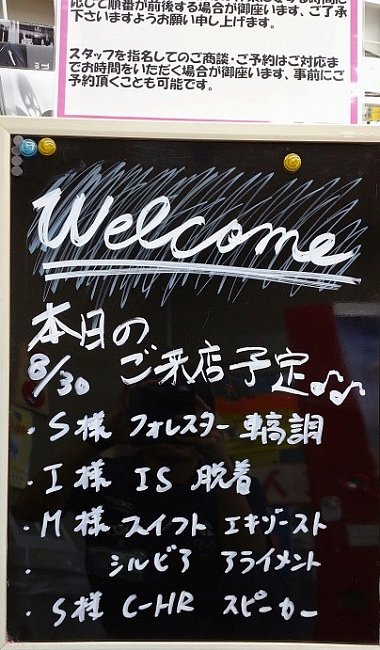 応じて順番が前後する場合が御座います、ご了承
下さいますようお願い申し上げます。
スタッフを指名してのご商談・ご予約はご対応ま
でお時間をいただく場合が御座います、事前にご
予約頂くことも可能です。
Welcome
本日の
8/30 ご来店予定♪♫
・S様 フォレスター 車高調
・I様 IS 脱着
・M様 スイフト エキゾースト
・ シルビア アライメント
・S様 C-HR スピーカー